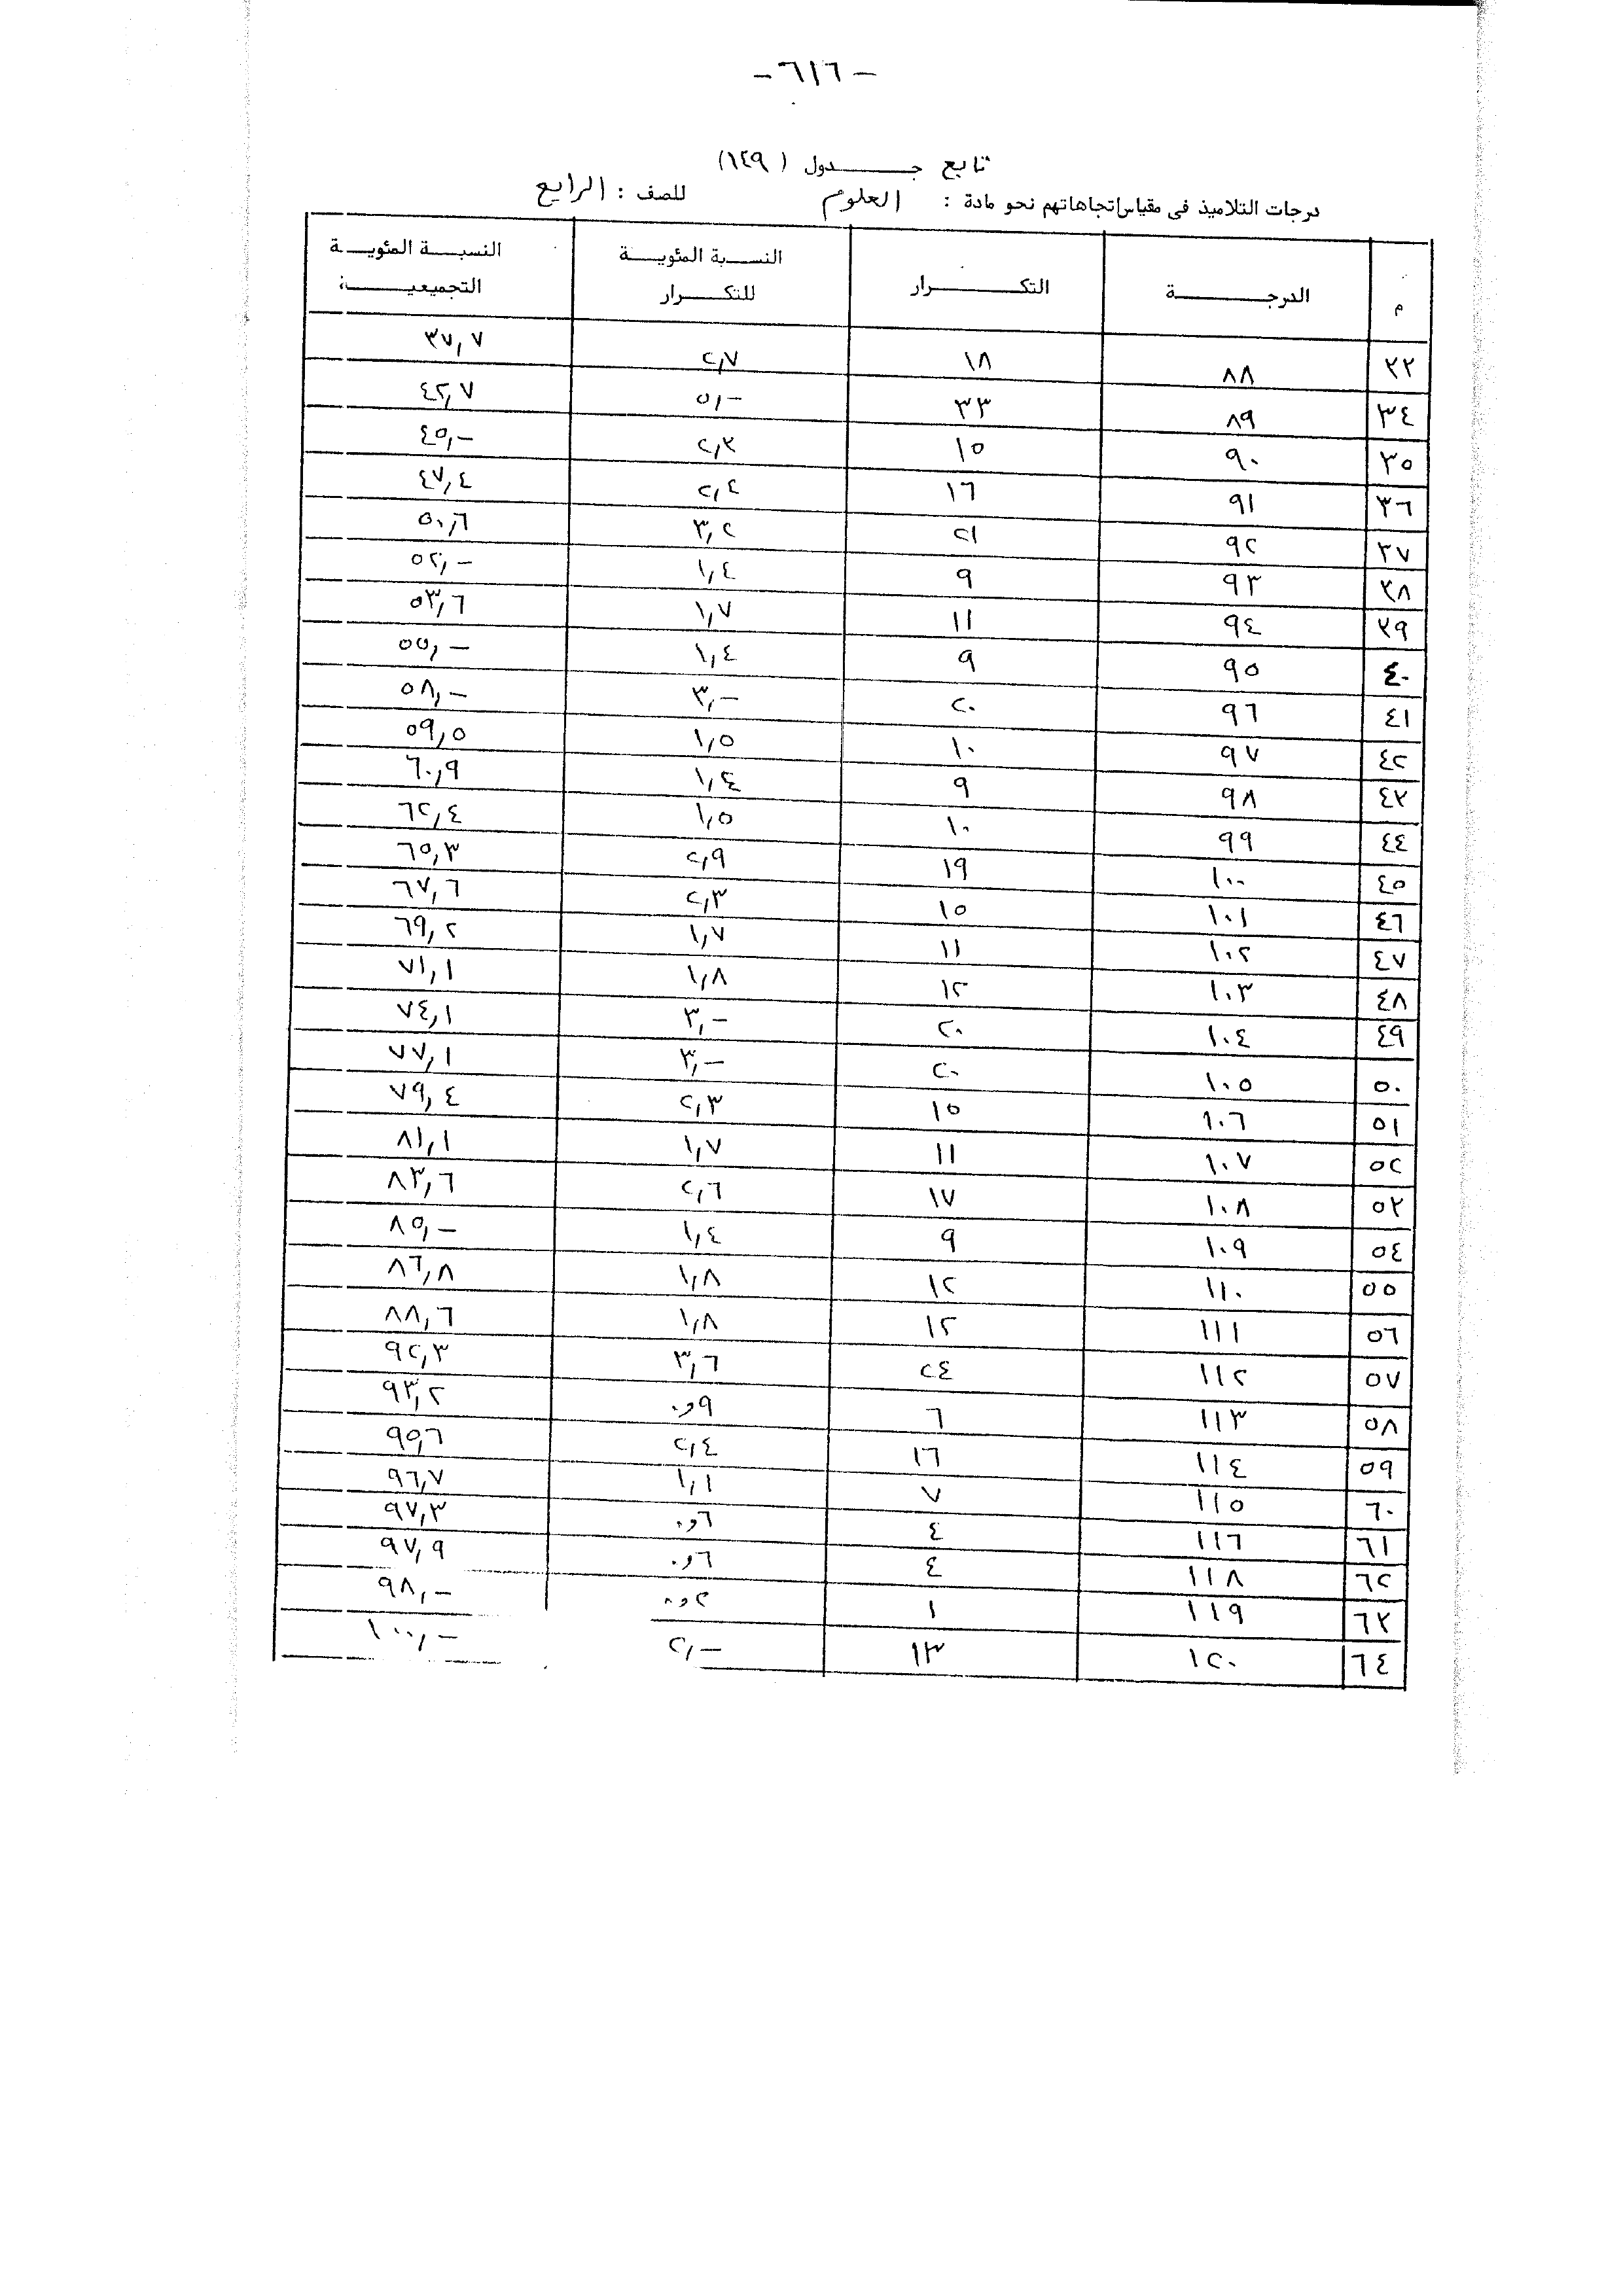 -٦١٦-
تابع جــــدول (١٤٩)
درجات التلاميذ فى مقياس اتجاهاتهم نحو مادة : العلوم للصف : الرابع
م الدرجــــة التكــــرار النســبة المئويــة للتكــــرار النسبــــة المئويــة التجميعيــــة
٣٣ ٨٨ ١٨ ٢,٧ ٣٧,٧
٣٤ ٨٩ ٣٣ ٥,- ٤٢,٧
٣٥ ٩٠ ١٥ ٢,٣ ٤٥,-
٣٦ ٩١ ١٦ ٢,٤ ٤٧,٤
٣٧ ٩٢ ٢١ ٣,٢ ٥٠,٦
٣٨ ٩٣ ٩ ١,٤ ٥٢,-
٣٩ ٩٤ ١١ ١,٧ ٥٣,٦
٤٠ ٩٥ ٩ ١,٤ ٥٥,-
٤١ ٩٦ ٢٠ ٣,- ٥٨,-
٤٢ ٩٧ ١٠ ١,٥ ٥٩,٥
٤٣ ٩٨ ٩ ١,٤ ٦٠,٩
٤٤ ٩٩ ١٠ ١,٥ ٦٢,٤
٤٥ ١٠٠ ١٩ ٢,٩ ٦٥,٣
٤٦ ١٠١ ١٥ ٢,٣ ٦٧,٦
٤٧ ١٠٢ ١١ ١,٧ ٦٩,٢
٤٨ ١٠٣ ١٢ ١,٨ ٧١,١
٤٩ ١٠٤ ٢٠ ٣,- ٧٤,١
٥٠ ١٠٥ ٢٠ ٣,- ٧٧,١
٥١ ١٠٦ ١٥ ٢,٣ ٧٩,٤
٥٢ ١٠٧ ١١ ١,٧ ٨١,١
٥٣ ١٠٨ ١٧ ٢,٦ ٨٣,٦
٥٤ ١٠٩ ٩ ١,٤ ٨٥,-
٥٥ ١١٠ ١٢ ١,٨ ٨٦,٨
٥٦ ١١١ ١٢ ١,٨ ٨٨,٦
٥٧ ١١٢ ٢٤ ٣,٦ ٩٢,٣
٥٨ ١١٣ ٦ ٩و٠ ٩٣,٢
٥٩ ١١٤ ١٦ ٢,٤ ٩٥,٦
٦٠ ١١٥ ٧ ١,١ ٩٦,٧
٦١ ١١٦ ٤ ٦و٠ ٩٧,٣
٦٢ ١١٨ ٤ ٦و٠ ٩٧,٩
٦٣ ١١٩ ١ ٢و٠ ٩٨,-
٦٤ ١٢٠ ١٣ ٢,- ١٠٠,-